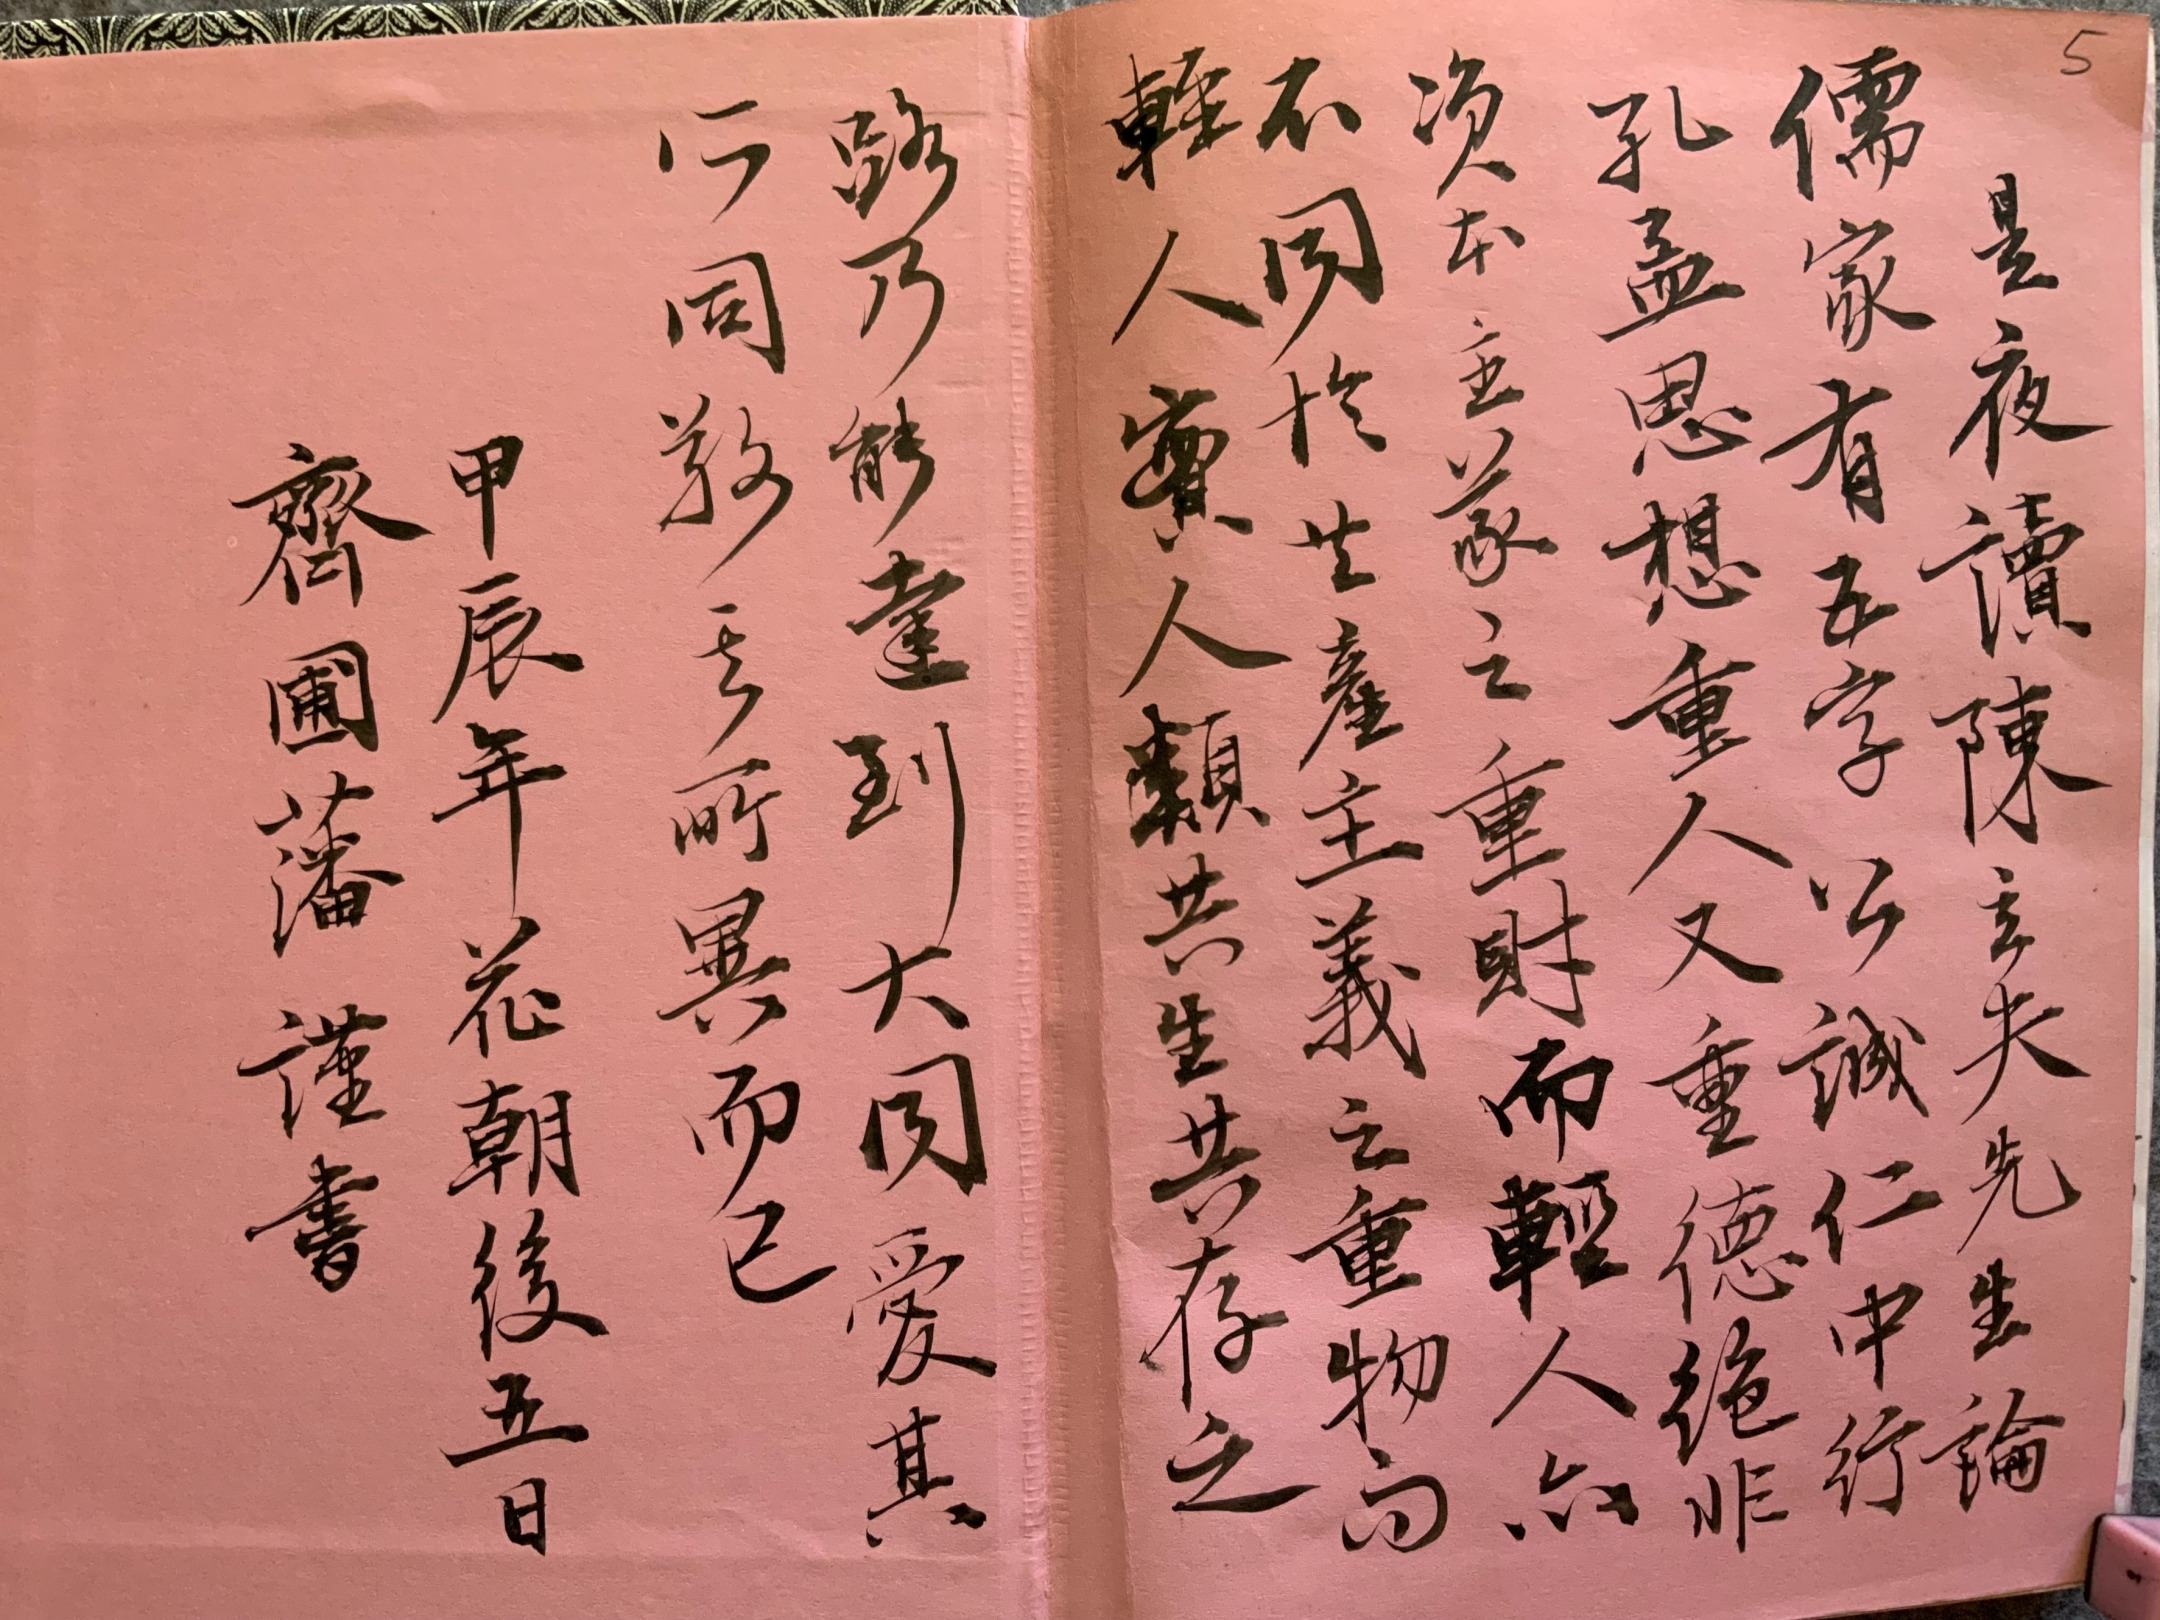 5
是夜讀陳立夫先生論
儒家有五字公誠仁中行
孔孟思想重人又重德絕非
資本主義之重財而輕人亦
不同於共產主義之重物而
輕人實人類共生共存之
路乃能達到大同愛其
所同敬其所異而已
甲辰年花朝後五日
齊國藩謹書